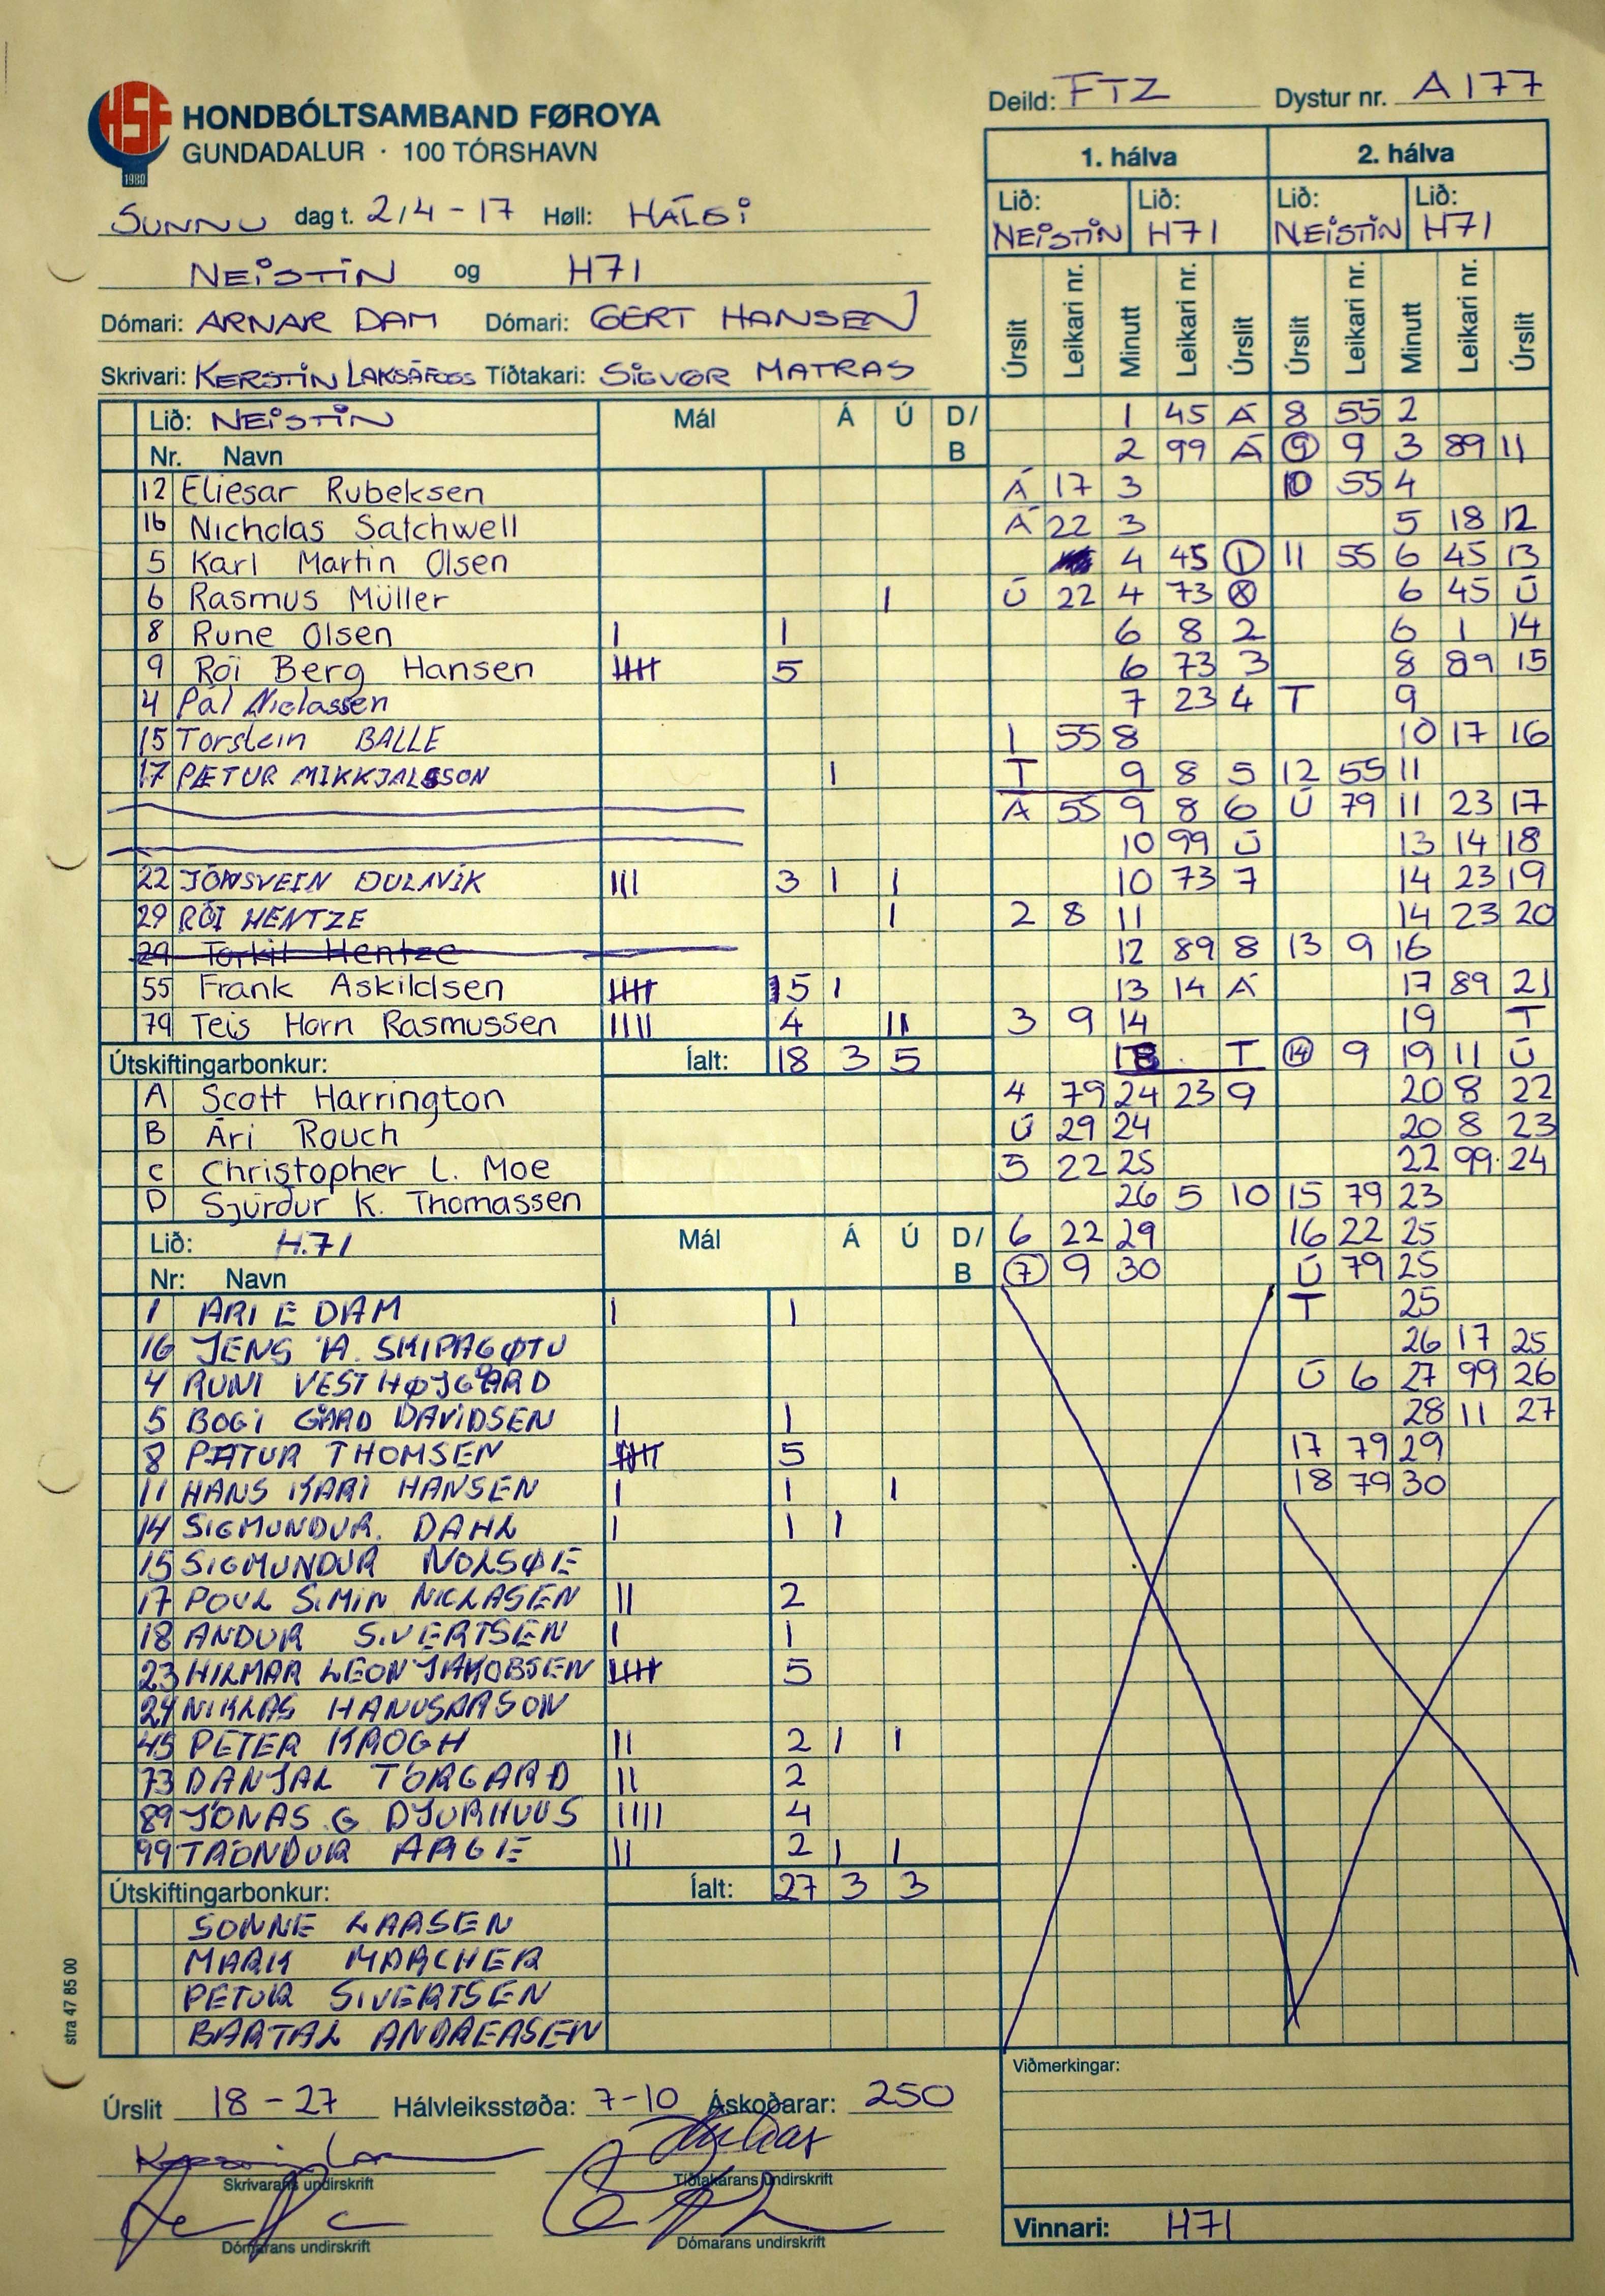 HSF
1980
HONDBÓLTSAMBAND FØROYA
GUNDADALUR · 100 TÓRSHAVN
Deild: FTZ Dystur nr. A177
SUNNU dag t. 2/4-17 Høll: HÁLSI
NEISTIN og H71
Dómari: ARNAR DAM Dómari: GERT HANSEN
Skrivari: KERSTIN LAKSÁFOSS Tíðtakari: SIGVØR MATRAS
1. hálva 2. hálva
Lið: NEISTIN Lið: H71 Lið: NEISTIN Lið: H71
Úrslit Leikari nr. Minutt Leikari nr. Úrslit Úrslit Leikari nr. Minutt Leikari nr. Úrslit
Lið: NEISTIN Mál Á Ú D/B
Nr. Navn
12 Eliesar Rubeksen
16 Nicholas Satchwell
5 Karl Martin Olsen
6 Rasmus Müller I
8 Rune Olsen I 1
9 Rói Berg Hansen IIIII 5
4 Pál Niclassen
15 Torstein BALLE
17 PÆTUR MIKKJALSSON I
22 JÓNSVEIN DULAVÍK III 3 I I
29 RÓI HENTZE I
29 Torkil Hentze
55 Frank Askildsen IIIII 5 I
79 Teis Horn Rasmussen IIII 4 II
Útskiftingarbonkur: Íalt: 18 3 5
A Scott Harrington
B Ári Rouch
C Christopher L. Moe
D Sjúrður K. Thomassen
Lið: H.71 Mál Á Ú D/B
Nr: Navn
1 ARI E DAM I 1
16 JENS A. SKIPAGØTU
4 RUNI VESTHØJGÅRD
5 BOGI GÅRD DAVIDSEN I 1
8 PÆTUR THOMSEN IIIII 5
11 HANS KARI HANSEN I 1 I
14 SIGMUNDUR. DAHL I 1 I
15 SIGMUNDUR NOLSØE
17 POUL SIMIN NICLASEN II 2
18 ANDUR SIVERTSEN I 1
23 HILMAR LEON JAKOBSEN IIIII 5
24 NIKLAS HANUSARSON
45 PETER KROGH II 2 I I
73 DANJAL TORGARD II 2
89 JÓNAS G DJURHUUS IIII 4
99 TRÓNDUR ARGE II 2 I I
Útskiftingarbonkur: Íalt: 27 3 3
SONNE LARSEN
MARK MARCHER
PETUR SIVERTSEN
BARTAL ANDREASEN
1 45 Á 8 55 2
2 99 Á 9 9 3 89 11
Á 17 3 10 55 4
Á 22 3 5 18 12
4 45 1 11 55 6 45 13
Ú 22 4 73 X 6 45 Ú
6 8 2 6 1 14
6 73 3 8 89 15
7 23 4 T 9
1 55 8 10 17 16
T 9 8 5 12 55 11
Á 55 9 8 6 Ú 79 11 23 17
10 99 Ú 13 14 18
10 73 7 14 23 19
2 8 11 14 23 20
12 89 8 13 9 16
13 14 Á 17 89 21
3 9 14 19 T
18 T 14 9 19 11 Ú
4 79 24 23 9 20 8 22
Ú 29 24 20 8 23
5 22 25 22 99 24
26 5 10 15 79 23
6 22 29 16 22 25
7 9 30 Ú 79 25
T 25
26 17 25
Ú 6 27 99 26
28 11 27
17 79 29
18 79 30
Úrslit 18-27 Hálvleiksstøða: 7-10 Áskoðarar: 250
Skrivarans undirskrift Tíðtakarans undirskrift
Dómarans undirskrift Dómarans undirskrift
Viðmerkingar:
Vinnari: H71
stra 47 85 00